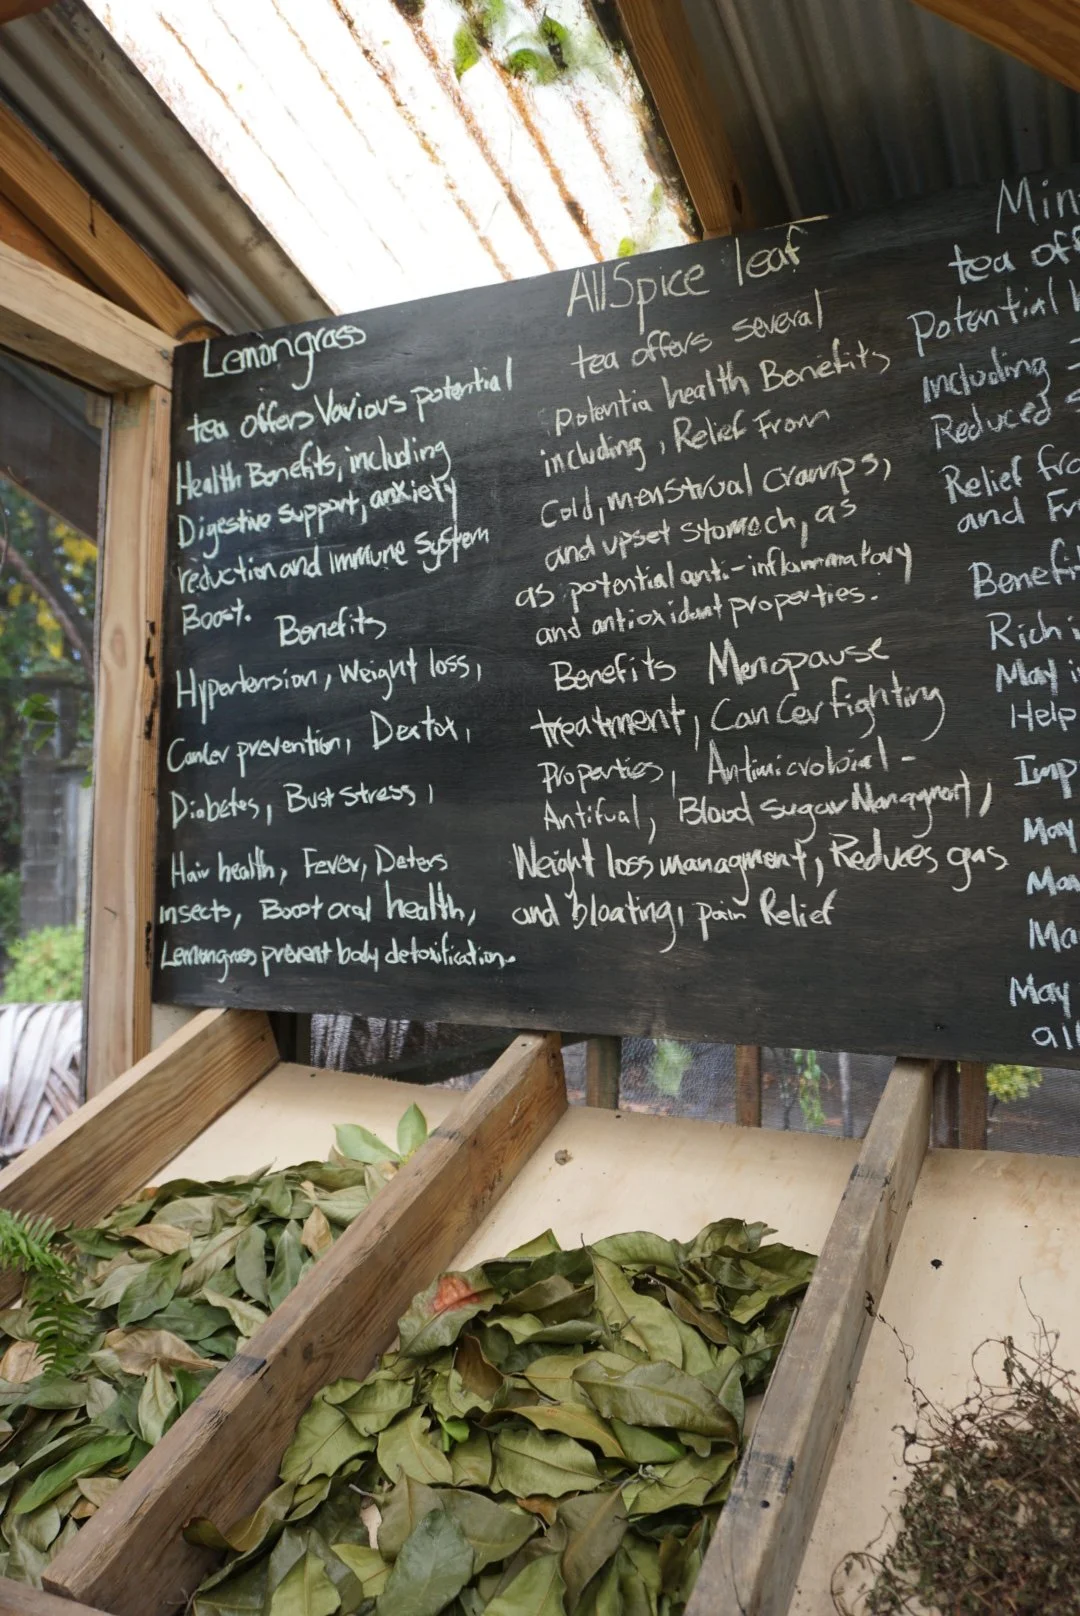 Lemongrass
tea offers Various potential
Health Benefits, including
Digestive support, anxiety
reduction and Immune System
Boost.
Benefits
Hypertension, Weight loss,
Cancer prevention, Dextox,
Diabetes, Bust stress,
Hair health, Fever, Deters
insects, Boost oral health,
Lemongrass prevent body detoxification.
AllSpice leaf
tea offers several
potentia health Benefits
including, Relief From
Cold, menstrual cramps,
and upset stomach, as
as potential anti-inflammatory
and antioxidant properties.
Benefits Menopause
treatment, Cancer fighting
Properties, Antimicrobial-
Antifual, Blood sugar Managment,
Weight loss managment, Reduces gas
and bloating, pain Relief
Min
tea off
Potential
Including
Reduced S
Relief fro
and Fr
Benefit
Rich i
May i
Help
Imp
May
Ma
Ma
May
all